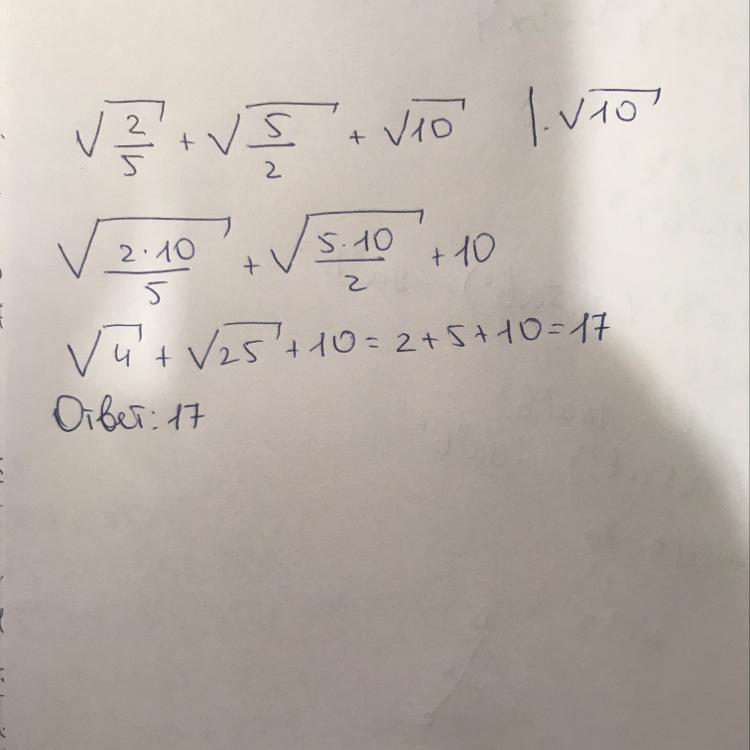 √(2/5) + √(5/2) + √10 |·√10
√(2·10/5) + √(5·10/2) + 10
√4 + √25 + 10 = 2+5+10=17
Ответ: 17